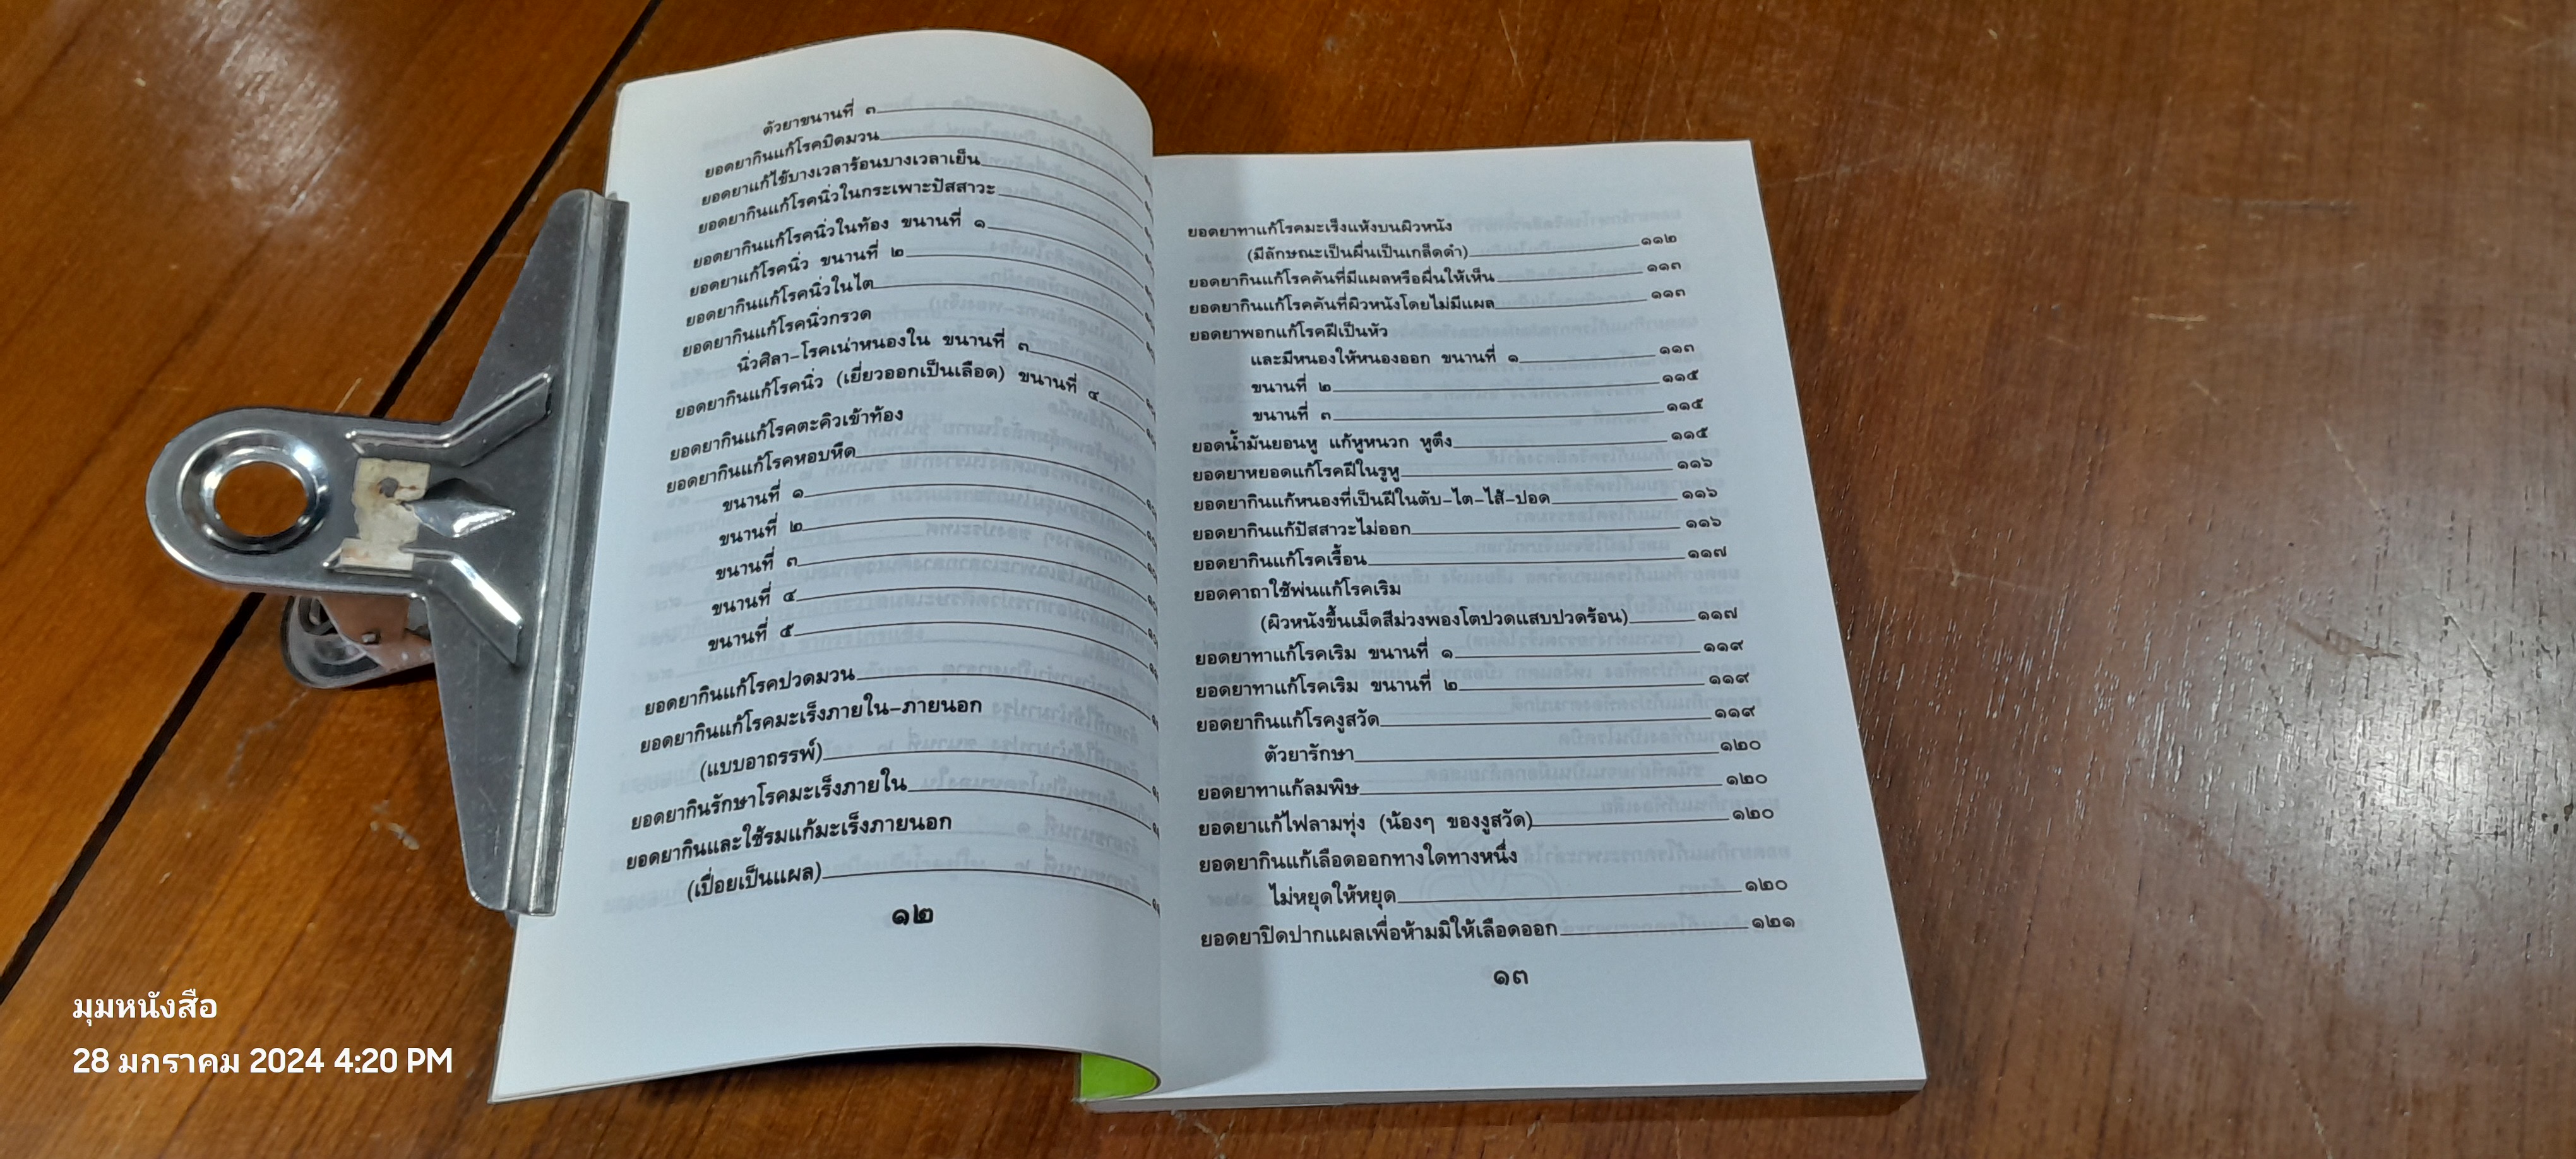 ตัวยาขนานที่ ๓
ยอดยากินแก้โรคบิดมวน
ยอดยาแก้ไข้บางเวลาร้อนบางเวลาเย็น
ยอดยากินแก้โรคนิ่วในกระเพาะปัสสาวะ
ยอดยากินแก้โรคนิ่วในท้อง ขนานที่ ๑
ยอดยาแก้โรคนิ่ว ขนานที่ ๒
ยอดยากินแก้โรคนิ่วในไต
ยอดยากินแก้โรคนิ่วกรวด
นิ่วศิลา-โรคเน่าหนองใน ขนานที่ ๓
ยอดยากินแก้โรคนิ่ว (เยี่ยวออกเป็นเลือด) ขนานที่ ๔
ยอดยากินแก้โรคตะคิวเข้าท้อง
ยอดยากินแก้โรคหอบหืด
ขนานที่ ๑
ขนานที่ ๒
ขนานที่ ๓
ขนานที่ ๔
ขนานที่ ๕
ยอดยากินแก้โรคปวดมวน
ยอดยากินแก้โรคมะเร็งภายใน-ภายนอก
(แบบอาถรรพ์)
ยอดยากินรักษาโรคมะเร็งภายใน
ยอดยากินและใช้รมแก้มะเร็งภายนอก
(เปื่อยเป็นแผล)
๑๒
ยอดยาทาแก้โรคมะเร็งแห้งบนผิวหนัง
(มีลักษณะเป็นผื่นเป็นเกล็ดดำ) ๑๑๒
ยอดยากินแก้โรคคันที่มีแผลหรือผื่นให้เห็น ๑๑๓
ยอดยากินแก้โรคคันที่ผิวหนังโดยไม่มีแผล ๑๑๓
ยอดยาพอกแก้โรคฝีเป็นหัว
และมีหนองให้หนองออก ขนานที่ ๑ ๑๑๓
ขนานที่ ๒ ๑๑๕
ขนานที่ ๓ ๑๑๕
ยอดน้ำมันยอนหู แก้หูหนวก หูตึง ๑๑๕
ยอดยาหยอดแก้โรคฝีในรูหู ๑๑๖
ยอดยากินแก้หนองที่เป็นฝีในตับ-ไต-ไส้-ปอด ๑๑๖
ยอดยากินแก้ปัสสาวะไม่ออก ๑๑๖
ยอดยากินแก้โรคเรื้อน ๑๑๗
ยอดคาถาใช้พ่นแก้โรคเริม
(ผิวหนังขึ้นเม็ดสีม่วงพองโตปวดแสบปวดร้อน) ๑๑๗
ยอดยาทาแก้โรคเริม ขนานที่ ๑ ๑๑๙
ยอดยาทาแก้โรคเริม ขนานที่ ๒ ๑๑๙
ยอดยากินแก้โรคงูสวัด ๑๑๙
ตัวยารักษา ๑๒๐
ยอดยาทาแก้ลมพิษ ๑๒๐
ยอดยาแก้ไฟลามทุ่ง (น้องๆ ของงูสวัด) ๑๒๐
ยอดยากินแก้เลือดออกทางใดทางหนึ่ง
ไม่หยุดให้หยุด ๑๒๐
ยอดยาปิดปากแผลเพื่อห้ามมิให้เลือดออก ๑๒๑
๑๓
มุมหนังสือ
28 มกราคม 2024 4:20 PM